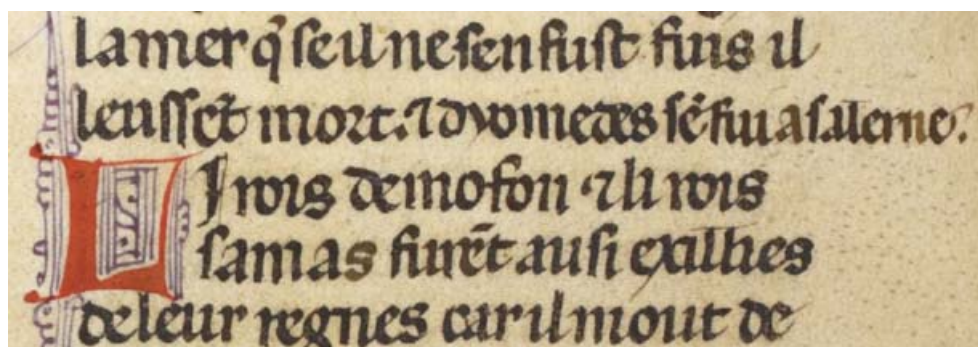 lamer q̃ seil ne sen fust fuis il
leussẽt mort. ⁊ dyomedes sẽ fui a salerne.
LJ rois demofon ⁊ li rois
samas furẽt ausi exillies
de leur regnes car il mout de